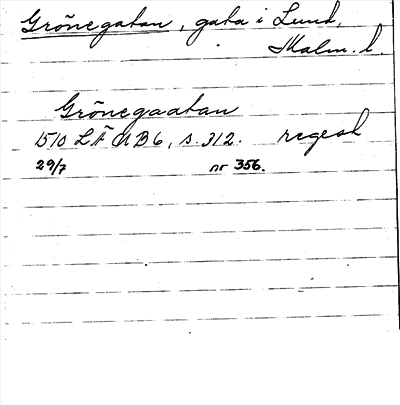 Grönegatan, gata i Lund,
Malm. l.
Grönegaatan
1510 LÄUB6, s. 312. regest
29/7 nr 356.